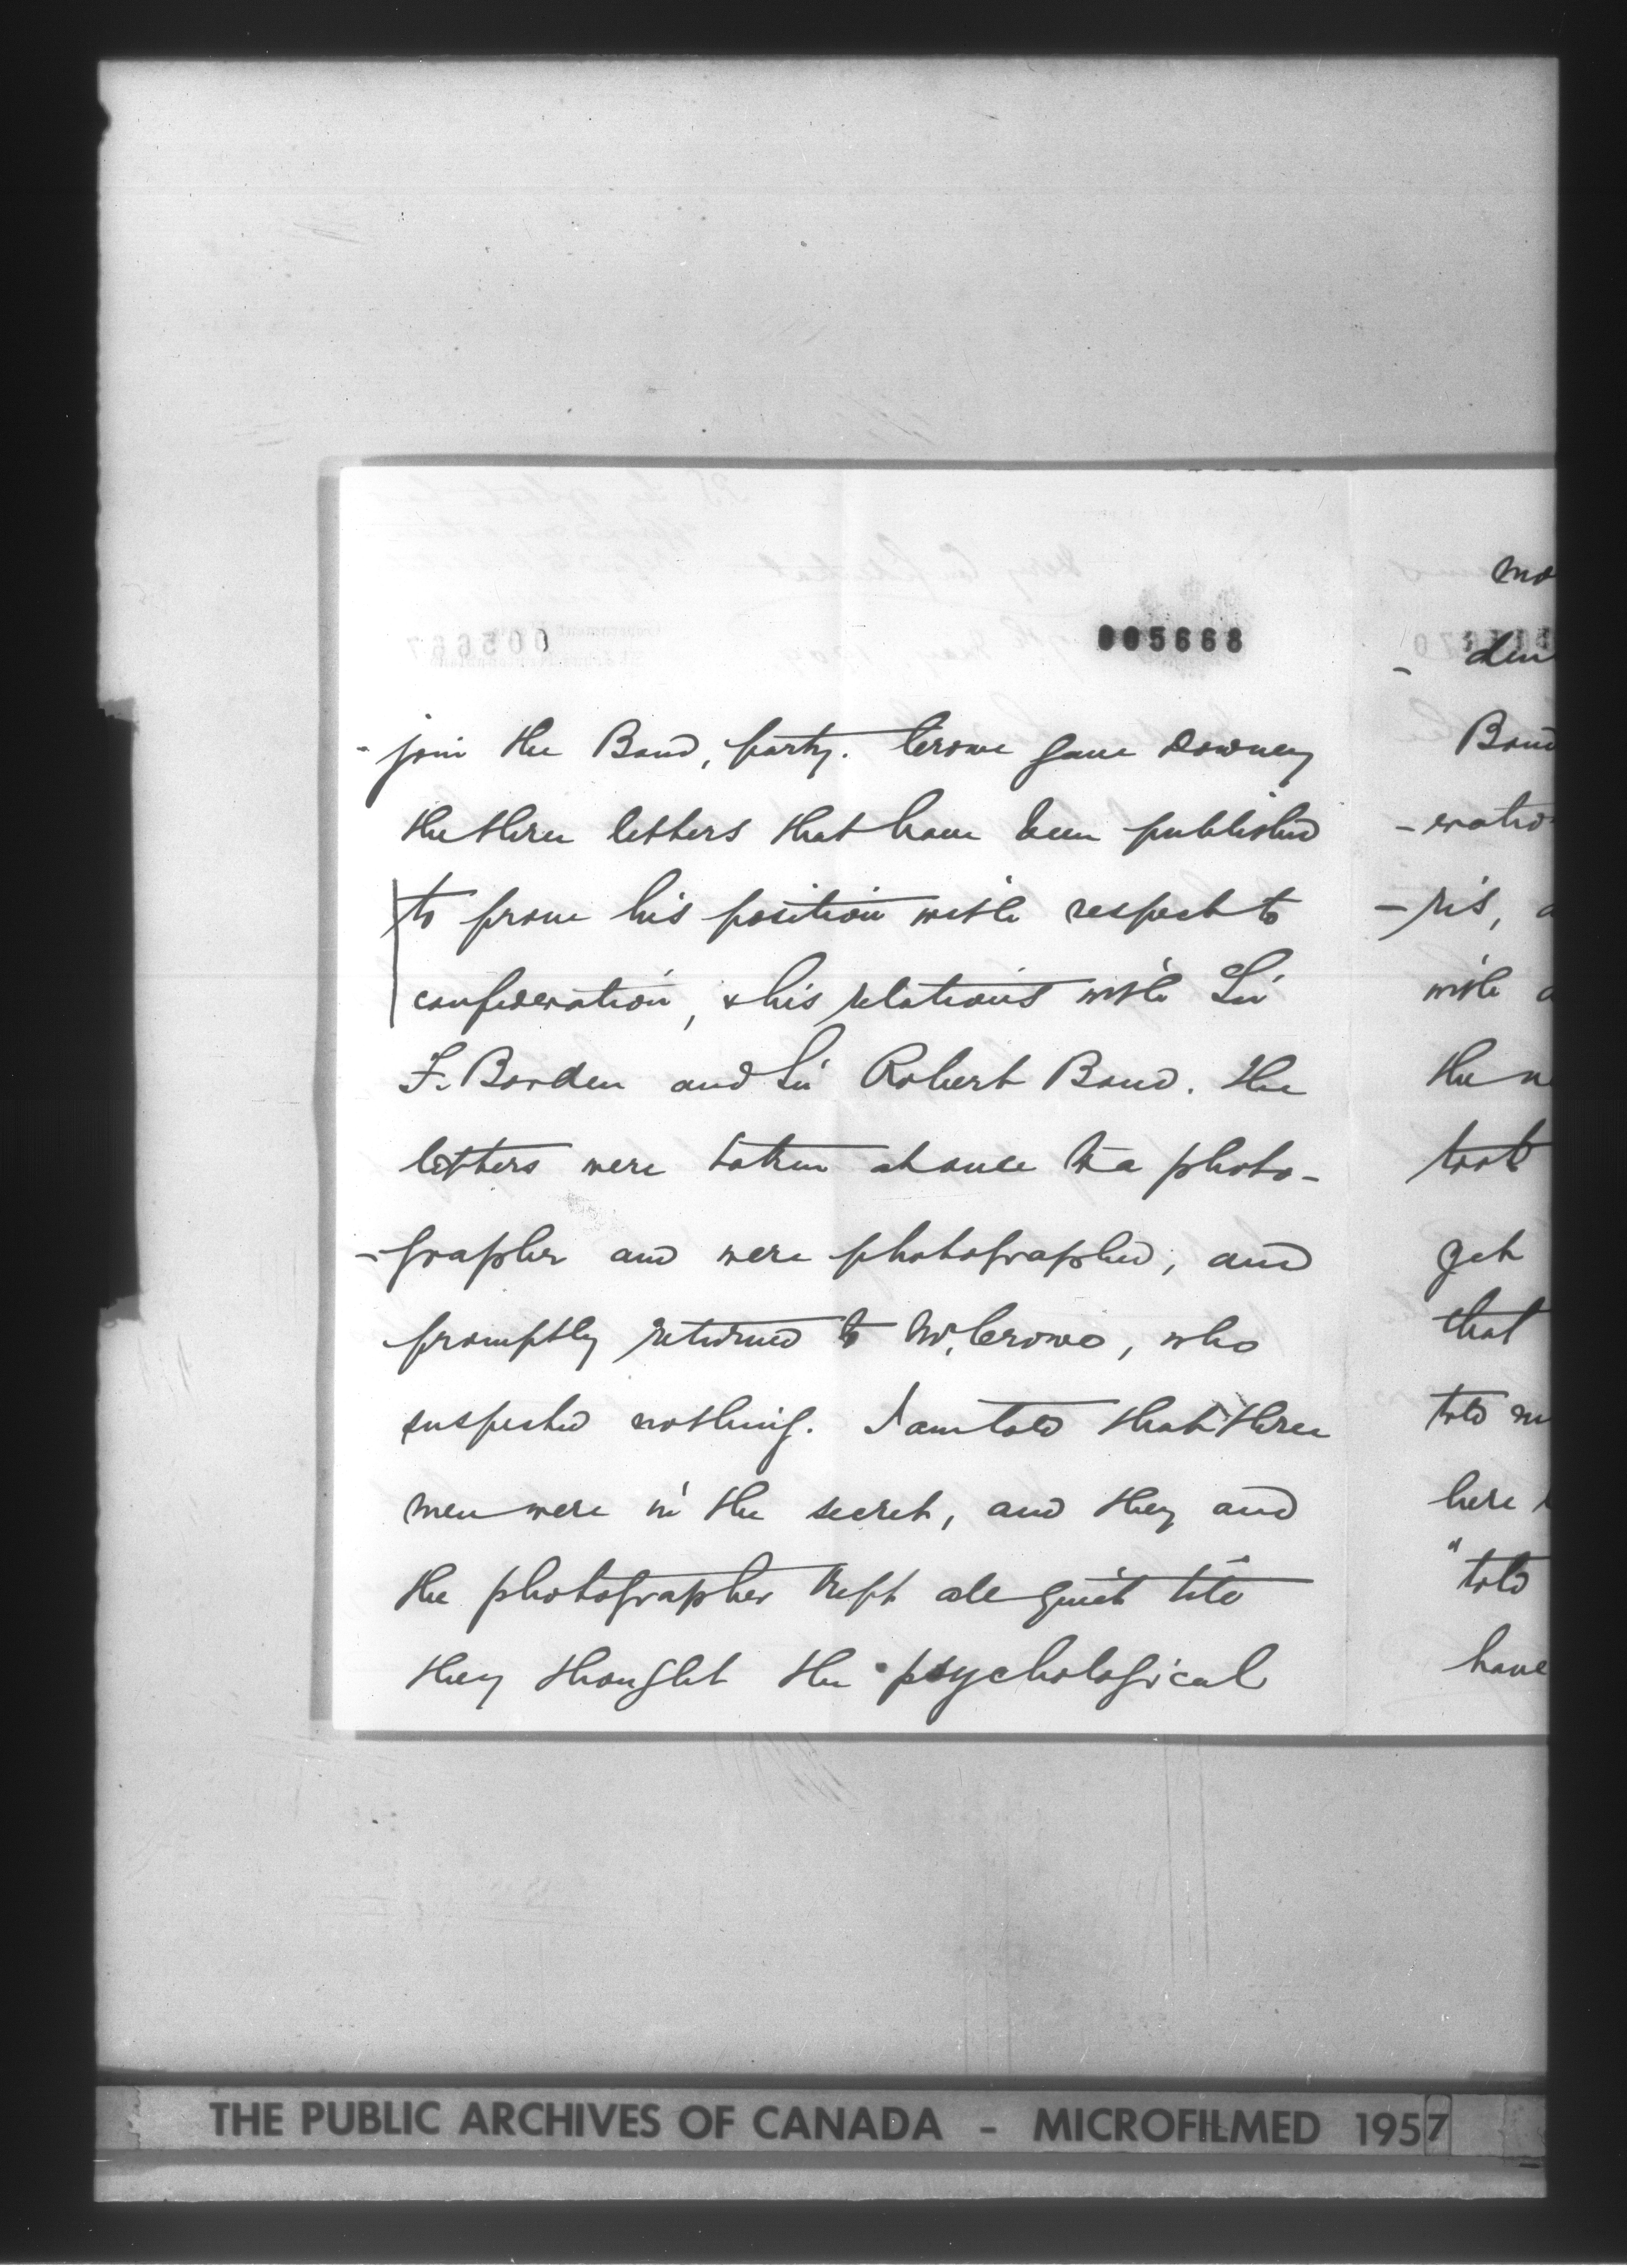 005668
- join the Bond, party. Crowe gave Downey
the three letters that have been published
to prove his position with respect to
confederation, & his relations with Sir
F. Borden and Sir Robert Bond. The
letters were taken at once to a photo-
-grapher and were photographed, and
promptly returned to Mr. Crowe, who
suspected nothing. I am told that three
men were in the secret, and they and
the photographer kept all quiet till
they thought the psychological
mo
- den
Bond
-eratio
-ris, a
with a
the n
took
get
that
told m
here
"told
have
THE PUBLIC ARCHIVES OF CANADA - MICROFILMED 1957